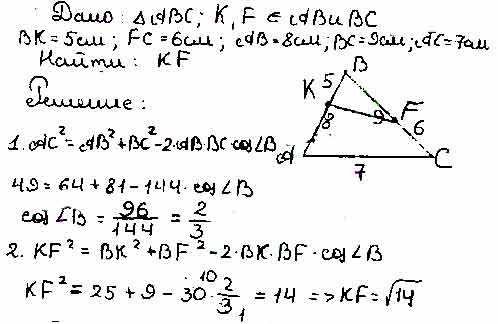 Дано: △ABC; K, F ∈ AB и BC
BK = 5 см; FC = 6 см; AB = 8 см; BC = 9 см; AC = 7 см
Найти: KF
Решение:
1. AC² = AB² + BC² - 2·AB·BC·cos∠B
49 = 64 + 81 - 144·cos∠B
cos∠B = 96/144 = 2/3
2. KF² = BK² + BF² - 2·BK·BF·cos∠B
KF² = 25 + 9 - 30·2/3 = 14 => KF = √14
10
1
B
5
K
8
9
F
6
A
7
C